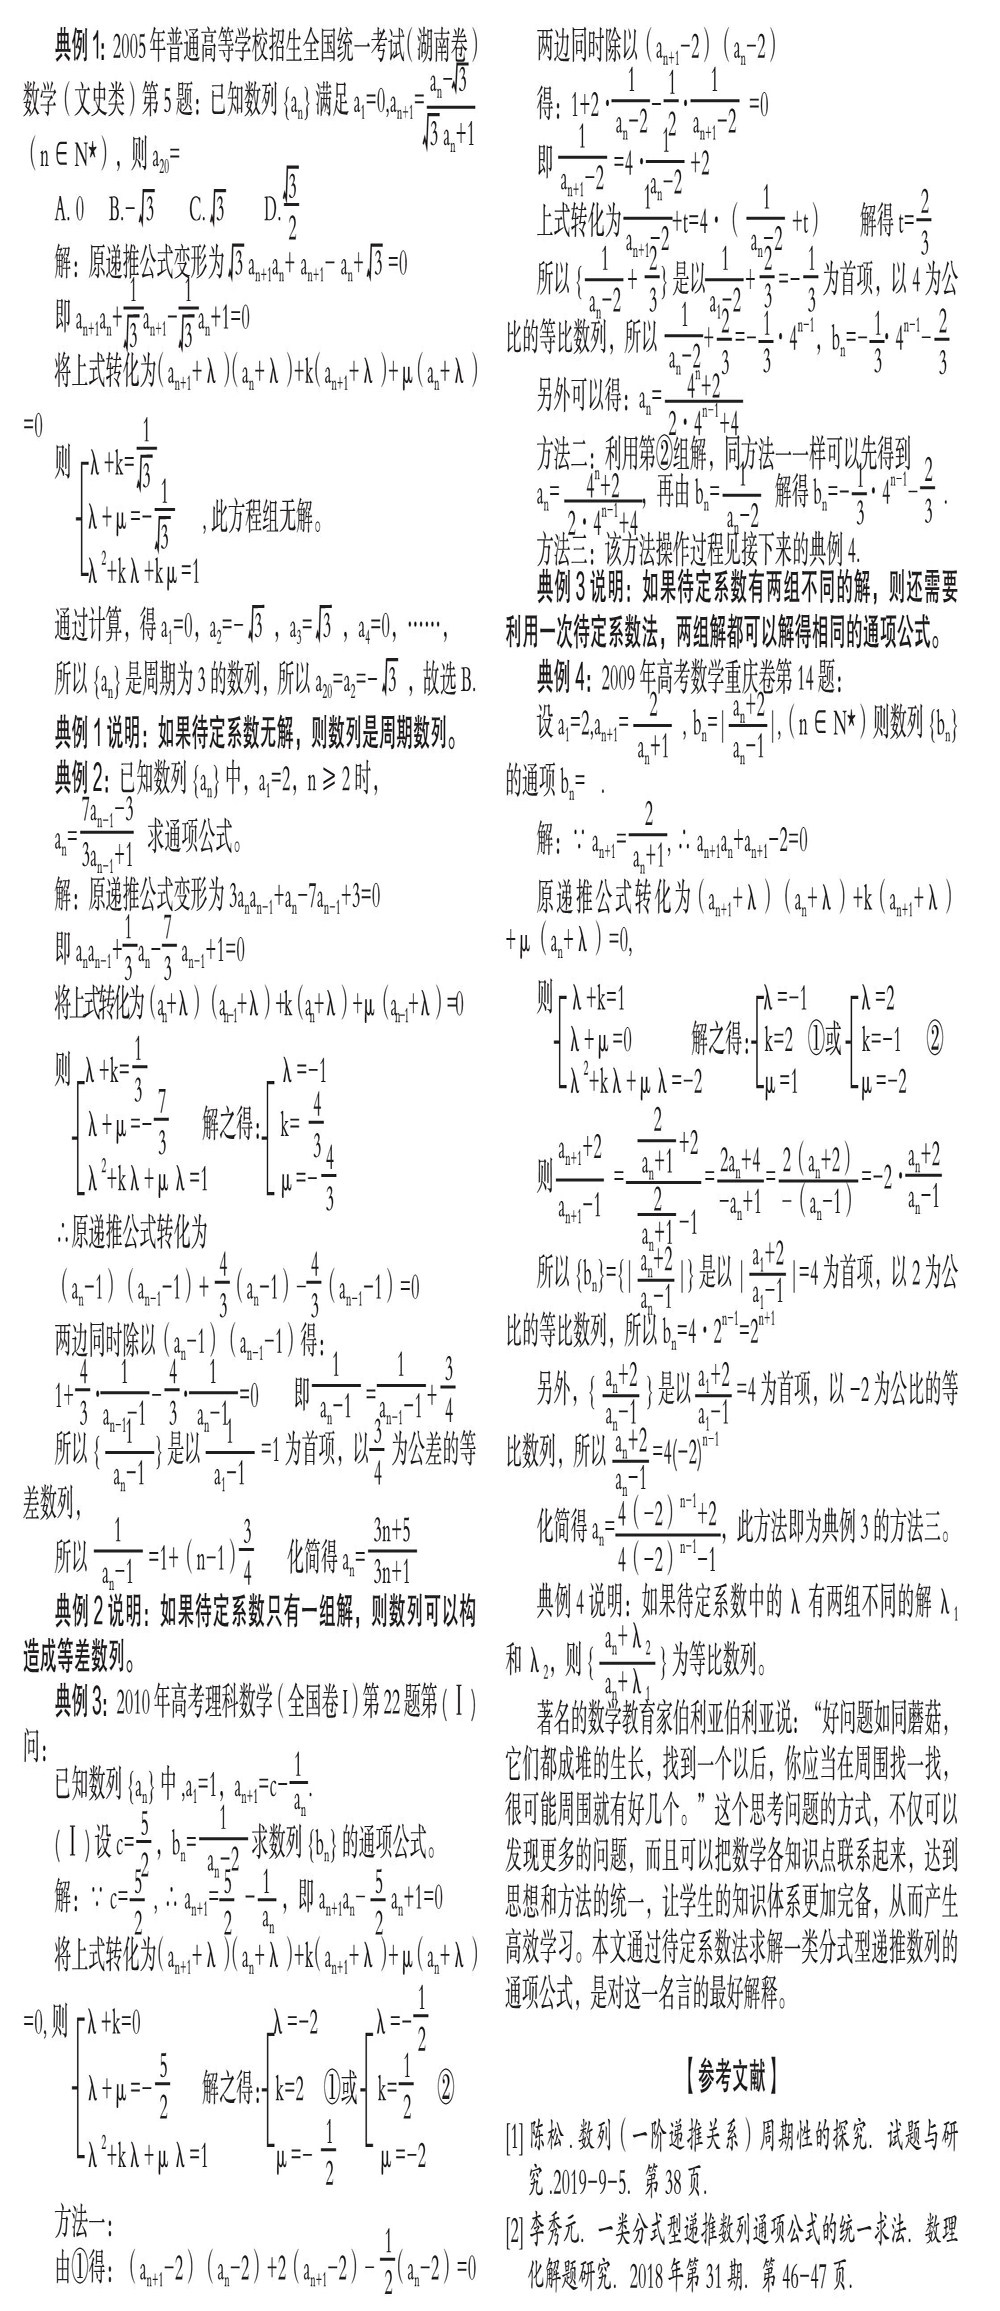 典例1：2005年普通高等学校招生全国统一考试(湖南卷)
数学（文史类）第5题：已知数列{aₙ}满足a₁=0,aₙ₊₁=(aₙ-√3)/(√3aₙ+1)
（n∈N*），则a₂₀=
A. 0 B.-√3 C.√3 D.√3/2
解：原递推公式变形为√3aₙ₊₁aₙ+aₙ₊₁-aₙ+√3=0
即aₙ₊₁aₙ+(1/√3)aₙ₊₁-(1/√3)aₙ+1=0
将上式转化为(aₙ₊₁+λ)(aₙ+λ)+k(aₙ₊₁+λ)+μ(aₙ+λ)
=0
则 λ+k=1/√3
λ+μ=-1/√3 ,此方程组无解。
λ²+kλ+kμ=1
通过计算，得a₁=0，a₂=-√3，a₃=√3，a₄=0，……，
所以{aₙ}是周期为3的数列，所以a₂₀=a₂=-√3，故选B.
典例1说明：如果待定系数无解，则数列是周期数列。
典例2：已知数列{aₙ}中，a₁=2，n≥2时，
aₙ=(7aₙ₋₁-3)/(3aₙ₋₁+1) 求通项公式。
解：原递推公式变形为3aₙaₙ₋₁+aₙ-7aₙ₋₁+3=0
即aₙaₙ₋₁+(1/3)aₙ-(7/3)aₙ₋₁+1=0
将上式转化为(aₙ+λ)(aₙ₋₁+λ)+k(aₙ+λ)+μ(aₙ₋₁+λ)=0
则 λ+k=1/3 λ=-1
λ+μ=-7/3 解之得: k=4/3
λ²+kλ+μλ=1 μ=-4/3
∴原递推公式转化为
（aₙ-1）（aₙ₋₁-1）+4/3（aₙ-1）-4/3（aₙ₋₁-1）=0
两边同时除以（aₙ-1）（aₙ₋₁-1）得：
1+4/3·1/(aₙ₋₁-1)-4/3·1/(aₙ-1)=0 即1/(aₙ-1)=1/(aₙ₋₁-1)+3/4
所以{1/(aₙ-1)}是以1/(a₁-1)=1为首项，以3/4为公差的等
差数列，
所以1/(aₙ-1)=1+（n-1）3/4 化简得aₙ=(3n+5)/(3n+1)
典例2说明：如果待定系数只有一组解，则数列可以构
造成等差数列。
典例3：2010年高考理科数学（全国卷I）第22题第(Ⅰ)
问：
已知数列{aₙ}中,a₁=1，aₙ₊₁=c-1/aₙ.
(Ⅰ)设c=5/2，bₙ=1/(aₙ-2)求数列{bₙ}的通项公式。
解：∵c=5/2，∴aₙ₊₁=5/2-1/aₙ，即aₙ₊₁aₙ-(5/2)aₙ+1=0
将上式转化为(aₙ₊₁+λ)(aₙ+λ)+k(aₙ₊₁+λ)+μ(aₙ+λ)
=0,则 λ+k=0 λ=-2 λ=-1/2
λ+μ=-5/2 解之得: k=2 ①或 k=1/2 ②
λ²+kλ+μλ=1 μ=-1/2 μ=-2
方法一：
由①得：（aₙ₊₁-2）（aₙ-2）+2（aₙ₊₁-2）-1/2(aₙ-2）=0
两边同时除以（aₙ₊₁-2）（aₙ-2）
得：1+2·1/(aₙ-2)-1/2·1/(aₙ₊₁-2)=0
即1/(aₙ₊₁-2)=4·1/(aₙ-2)+2
上式转化为1/(aₙ₊₁-2)+t=4·（1/(aₙ-2)+t） 解得t=2/3
所以{1/(aₙ-2)+2/3}是以1/(a₁-2)+2/3=-1/3为首项，以4为公
比的等比数列，所以1/(aₙ-2)+2/3=-1/3·4ⁿ⁻¹，bₙ=-1/3·4ⁿ⁻¹-2/3
另外可以得：aₙ=(4ⁿ+2)/(2·4ⁿ⁻¹+4)
方法二：利用第②组解，同方法一一样可以先得到
aₙ=(4ⁿ+2)/(2·4ⁿ⁻¹+4)，再由bₙ=1/(aₙ-2) 解得bₙ=-1/3·4ⁿ⁻¹-2/3.
方法三：该方法操作过程见接下来的典例4.
典例3说明：如果待定系数有两组不同的解，则还需要
利用一次待定系数法，两组解都可以解得相同的通项公式。
典例4：2009年高考数学重庆卷第14题：
设a₁=2,aₙ₊₁=2/(aₙ+1),bₙ=|(aₙ+2)/(aₙ-1)|,（n∈N*）则数列{bₙ}
的通项bₙ= .
解：∵aₙ₊₁=2/(aₙ+1),∴aₙ₊₁aₙ+aₙ₊₁-2=0
原递推公式转化为（aₙ₊₁+λ）（aₙ+λ）+k（aₙ₊₁+λ）
+μ（aₙ+λ）=0,
则 λ+k=1 λ=-1 λ=2
λ+μ=0 解之得: k=2 ①或 k=-1 ②
λ²+kλ+μλ=-2 μ=1 μ=-2
则(aₙ₊₁+2)/(aₙ₊₁-1)=(2/(aₙ+1)+2)/(2/(aₙ+1)-1)=(2aₙ+4)/(-aₙ+1)=2（aₙ+2）/-（aₙ-1）=-2·(aₙ+2)/(aₙ-1)
所以{bₙ}={|(aₙ+2)/(aₙ-1)|}是以|(a₁+2)/(a₁-1)|=4为首项，以2为公
比的等比数列，所以bₙ=4·2ⁿ⁻¹=2ⁿ⁺¹
另外，{(aₙ+2)/(aₙ-1)}是以(a₁+2)/(a₁-1)=4为首项，以-2为公比的等
比数列，所以(aₙ+2)/(aₙ-1)=4(-2)ⁿ⁻¹
化简得aₙ=(4（-2）ⁿ⁻¹+2)/(4（-2）ⁿ⁻¹-1)，此方法即为典例3的方法三。
典例4说明：如果待定系数中的λ有两组不同的解λ₁
和λ₂，则{(aₙ+λ₂)/(aₙ+λ₁)}为等比数列。
著名的数学教育家伯利亚伯利亚说：“好问题如同蘑菇，
它们都成堆的生长，找到一个以后，你应当在周围找一找，
很可能周围就有好几个。”这个思考问题的方式，不仅可以
发现更多的问题，而且可以把数学各知识点联系起来，达到
思想和方法的统一，让学生的知识体系更加完备，从而产生
高效学习。本文通过待定系数法求解一类分式型递推数列的
通项公式，是对这一名言的最好解释。
【参考文献】
[1]陈松.数列（一阶递推关系）周期性的探究. 试题与研
究.2019-9-5. 第38页.
[2]李秀元. 一类分式型递推数列通项公式的统一求法. 数理
化解题研究. 2018年第31期. 第46-47页.